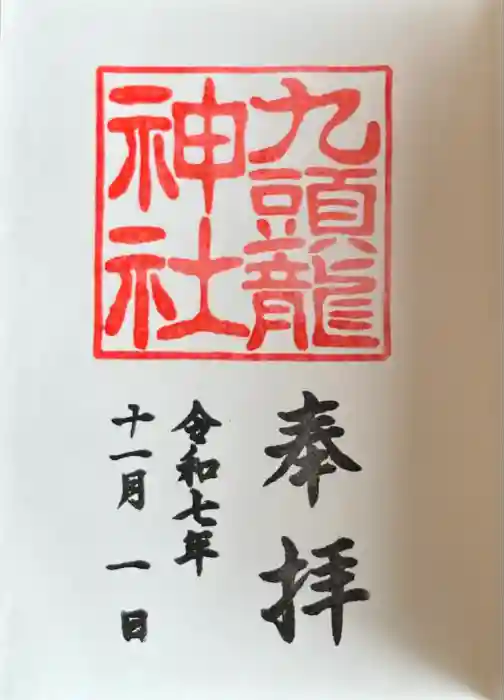 九頭龍
神社
奉拝
令和七年
十一月一日